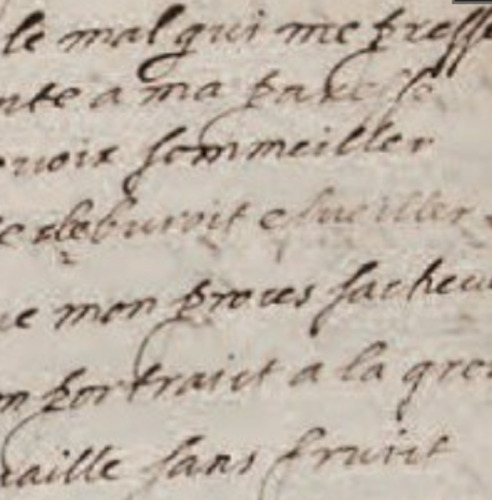 le mal qui me presse
nte a ma paresse
euoir sommeiller
deburoit esueiller
ue mon proces facheu
n portraict a la gre
uaille sans fruict